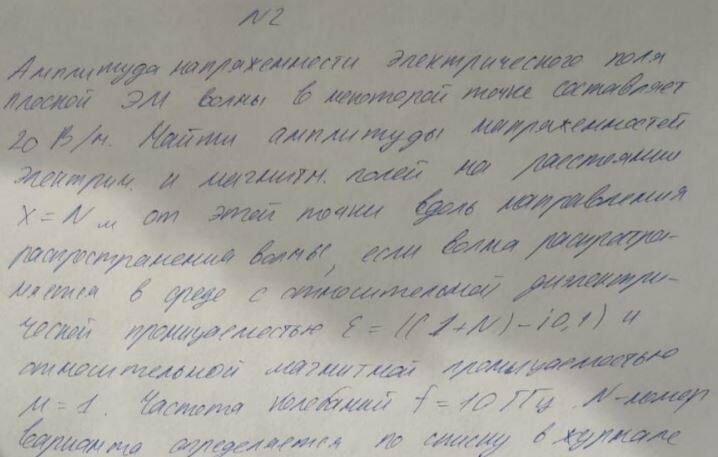 N2
Амплитуда напряженности электрического поля
плоской ЭМ волны в некоторой точке составляет
20 В/м. Найти амплитуды напряженностей
электрич. и магнитн. полей на расстоянии
x = N м от этой точки вдоль направления
распространения волны, если волна распростра-
няется в среде с относительной диэлектри-
ческой проницаемостью ε = ((1+N) - i0,1) и
относительной магнитной проницаемостью
μ = 1. Частота колебаний f = 10 ГГц. N - номер
варианта определяется по списку в журнале